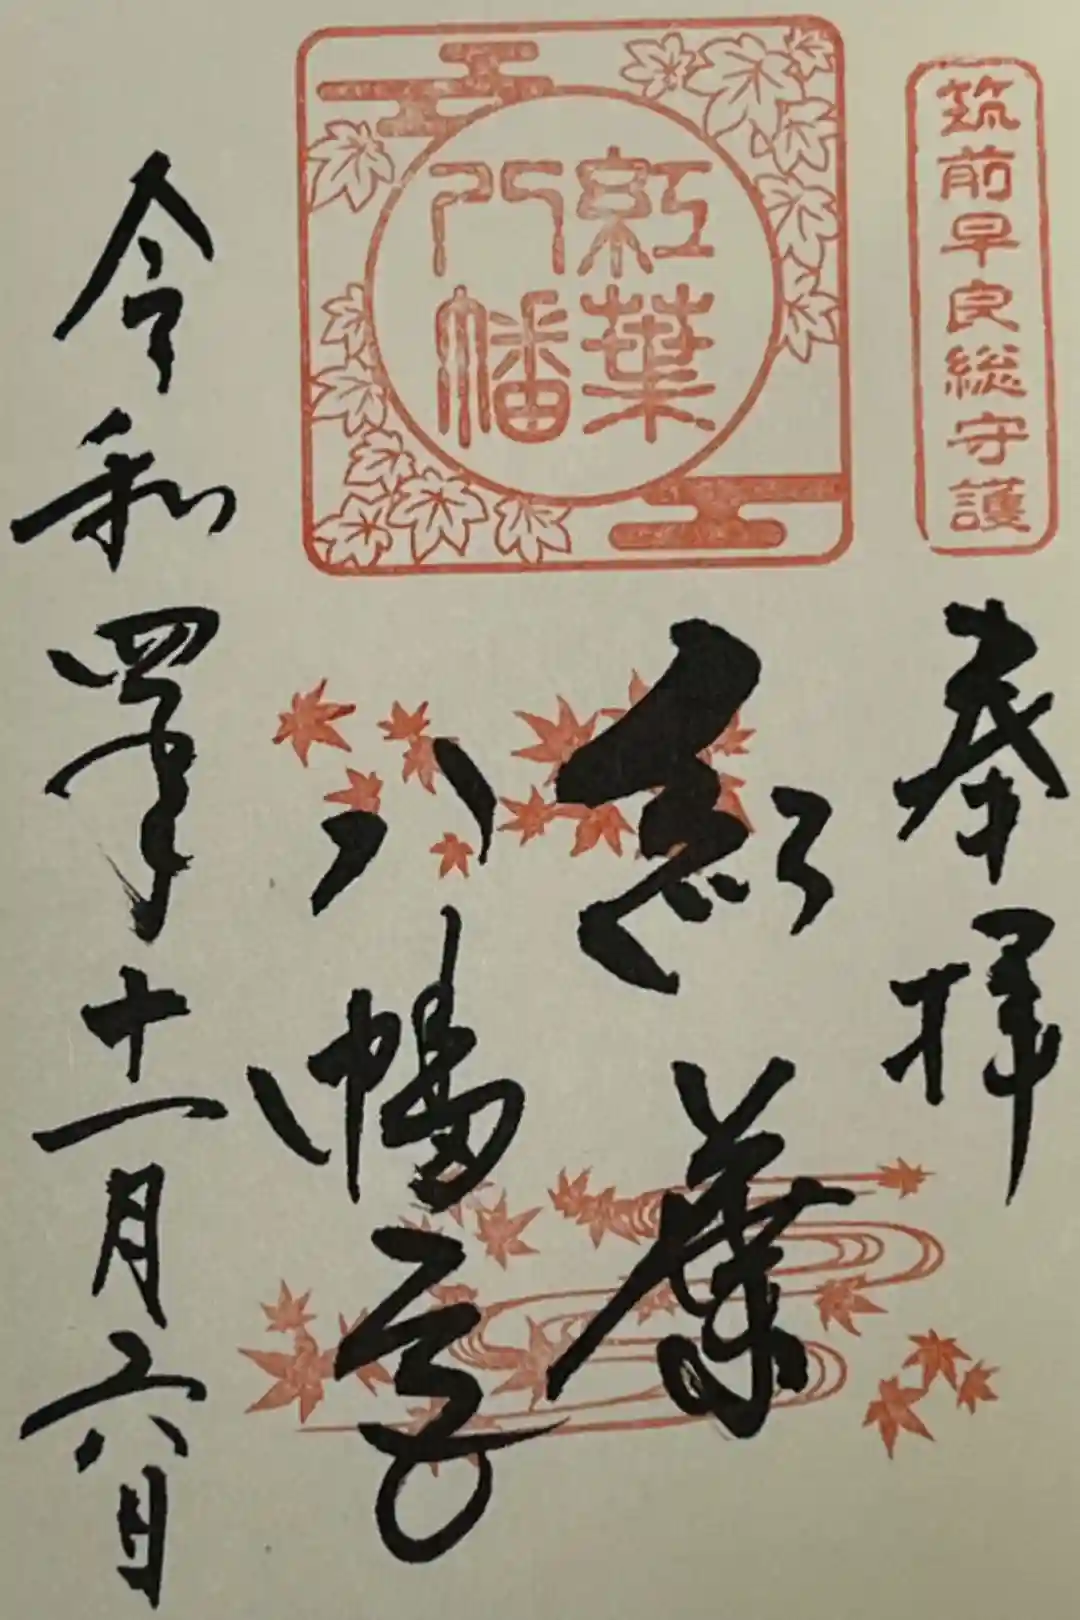 筑前早良総守護
奉拝
紅葉
八幡
紅葉
八幡宮
令和四年十一月六日